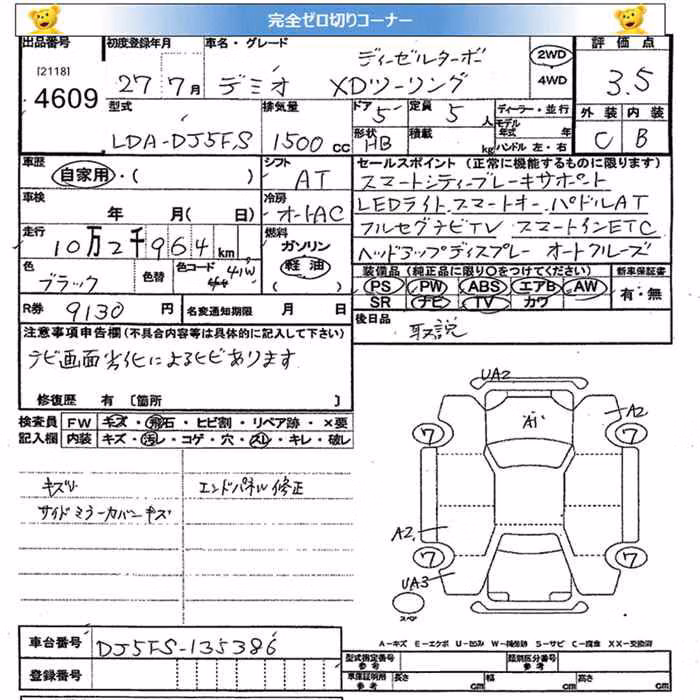 完全ゼロ切りコーナー
出品番号 初度登録年月 車名・グレード 評価点
[2118]
4609
27 7月 デミオ XDツーリング ディーゼルターボ 2WD 4WD 3.5
型式 排気量 ドア 定員 ディーラー・並行 外装 内装
LDA-DJ5FS 1500 CC 5 5人 モデル年式 年 C B
形状 HB 積載 kg ハンドル 左・右
車歴 シフト セールスポイント (正常に機能するものに限ります)
自家用・( ) AT スマートシティブレーキサポート
車検 冷房 LEDライト スマートキー パドルAT
年 月( 日) オートAC フルセグナビTV スマートインETC
走行 燃料 ヘッドアップディスプレー オートクルーズ
10万2千964km ガソリン 軽油
装備品 (純正品に限り○をつけてください) 新車保証書
色 色替 色コード PS PW ABS エアB AW 有・無
ブラック 41W SR ナビ TV カワ
R券 9130円 名変通知期限 月 日 後日品
取説
注意事項申告欄(不具合内容等は具体的に記入して下さい)
ナビ画面劣化によるヒビあります
修復歴 有 [箇所 ]
検査員 FW キズ・飛石・ヒビ割・リペア跡・×要
記入欄 内装 キズ・汚レ・コゲ・穴・スレ・キレ・破レ
キズU エンドパネル修正
サイドミラーカバーキズ
UA2
A1 A2
7 7
A2
7 7
UA3
スペア
A-キズ E-エクボ U-凹み W-補修跡 S-サビ C-腐食 XX-交換済
車台番号 DJ5FS-135386
登録番号
型式指定番号 参考 類別区分番号 参考
車庫証明用 参考 長さ cm 幅 cm 高さ cm